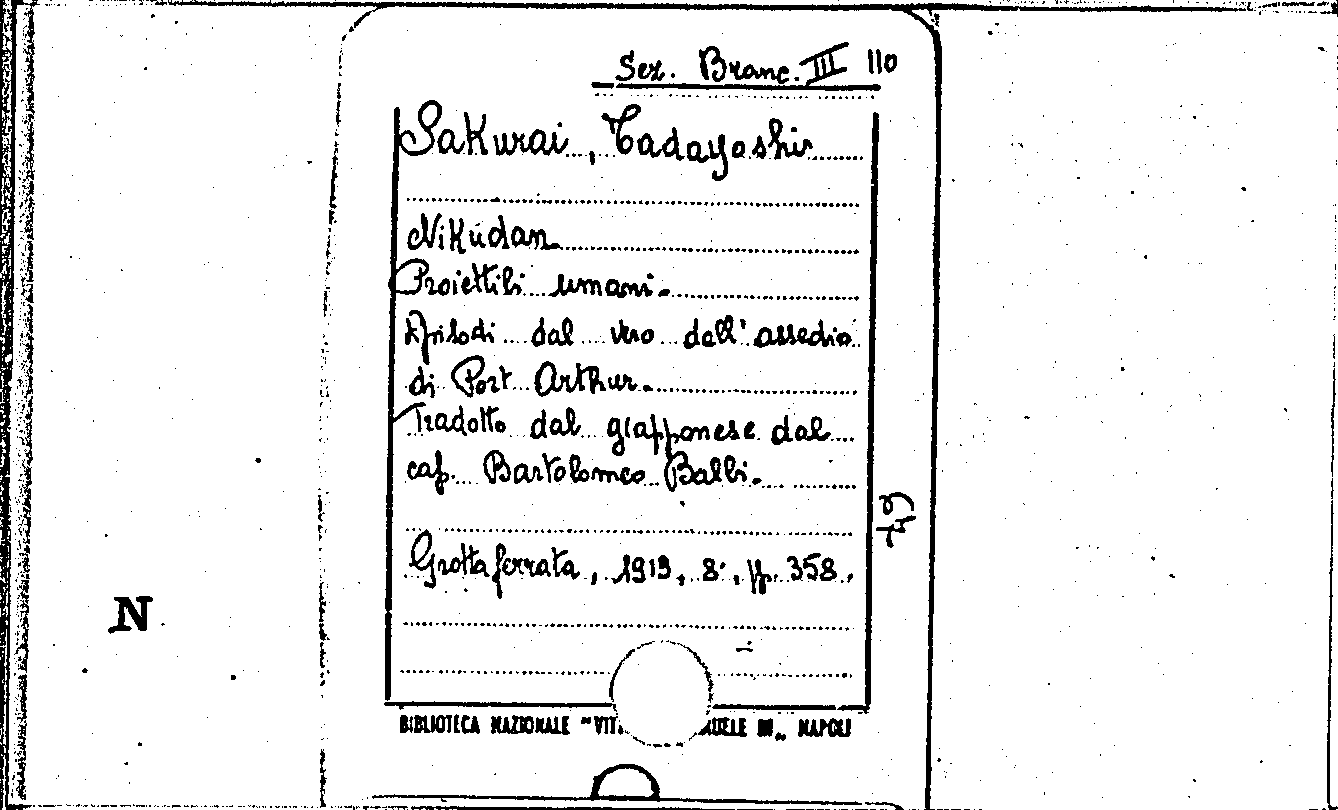 Sez. Branc. III 110
Sakurai, Tadayoshi
Nikudan
Proiettili umani.
Episodi dal vero dall'assedio
di Port Arthur.
Tradotto dal giapponese dal
cap. Bartolomeo Balbi.
Grottaferrata, 1913, 8°, pp. 358.
N
BIBLIOTECA NAZIONALE "VITT UELE III„ NAPOLI